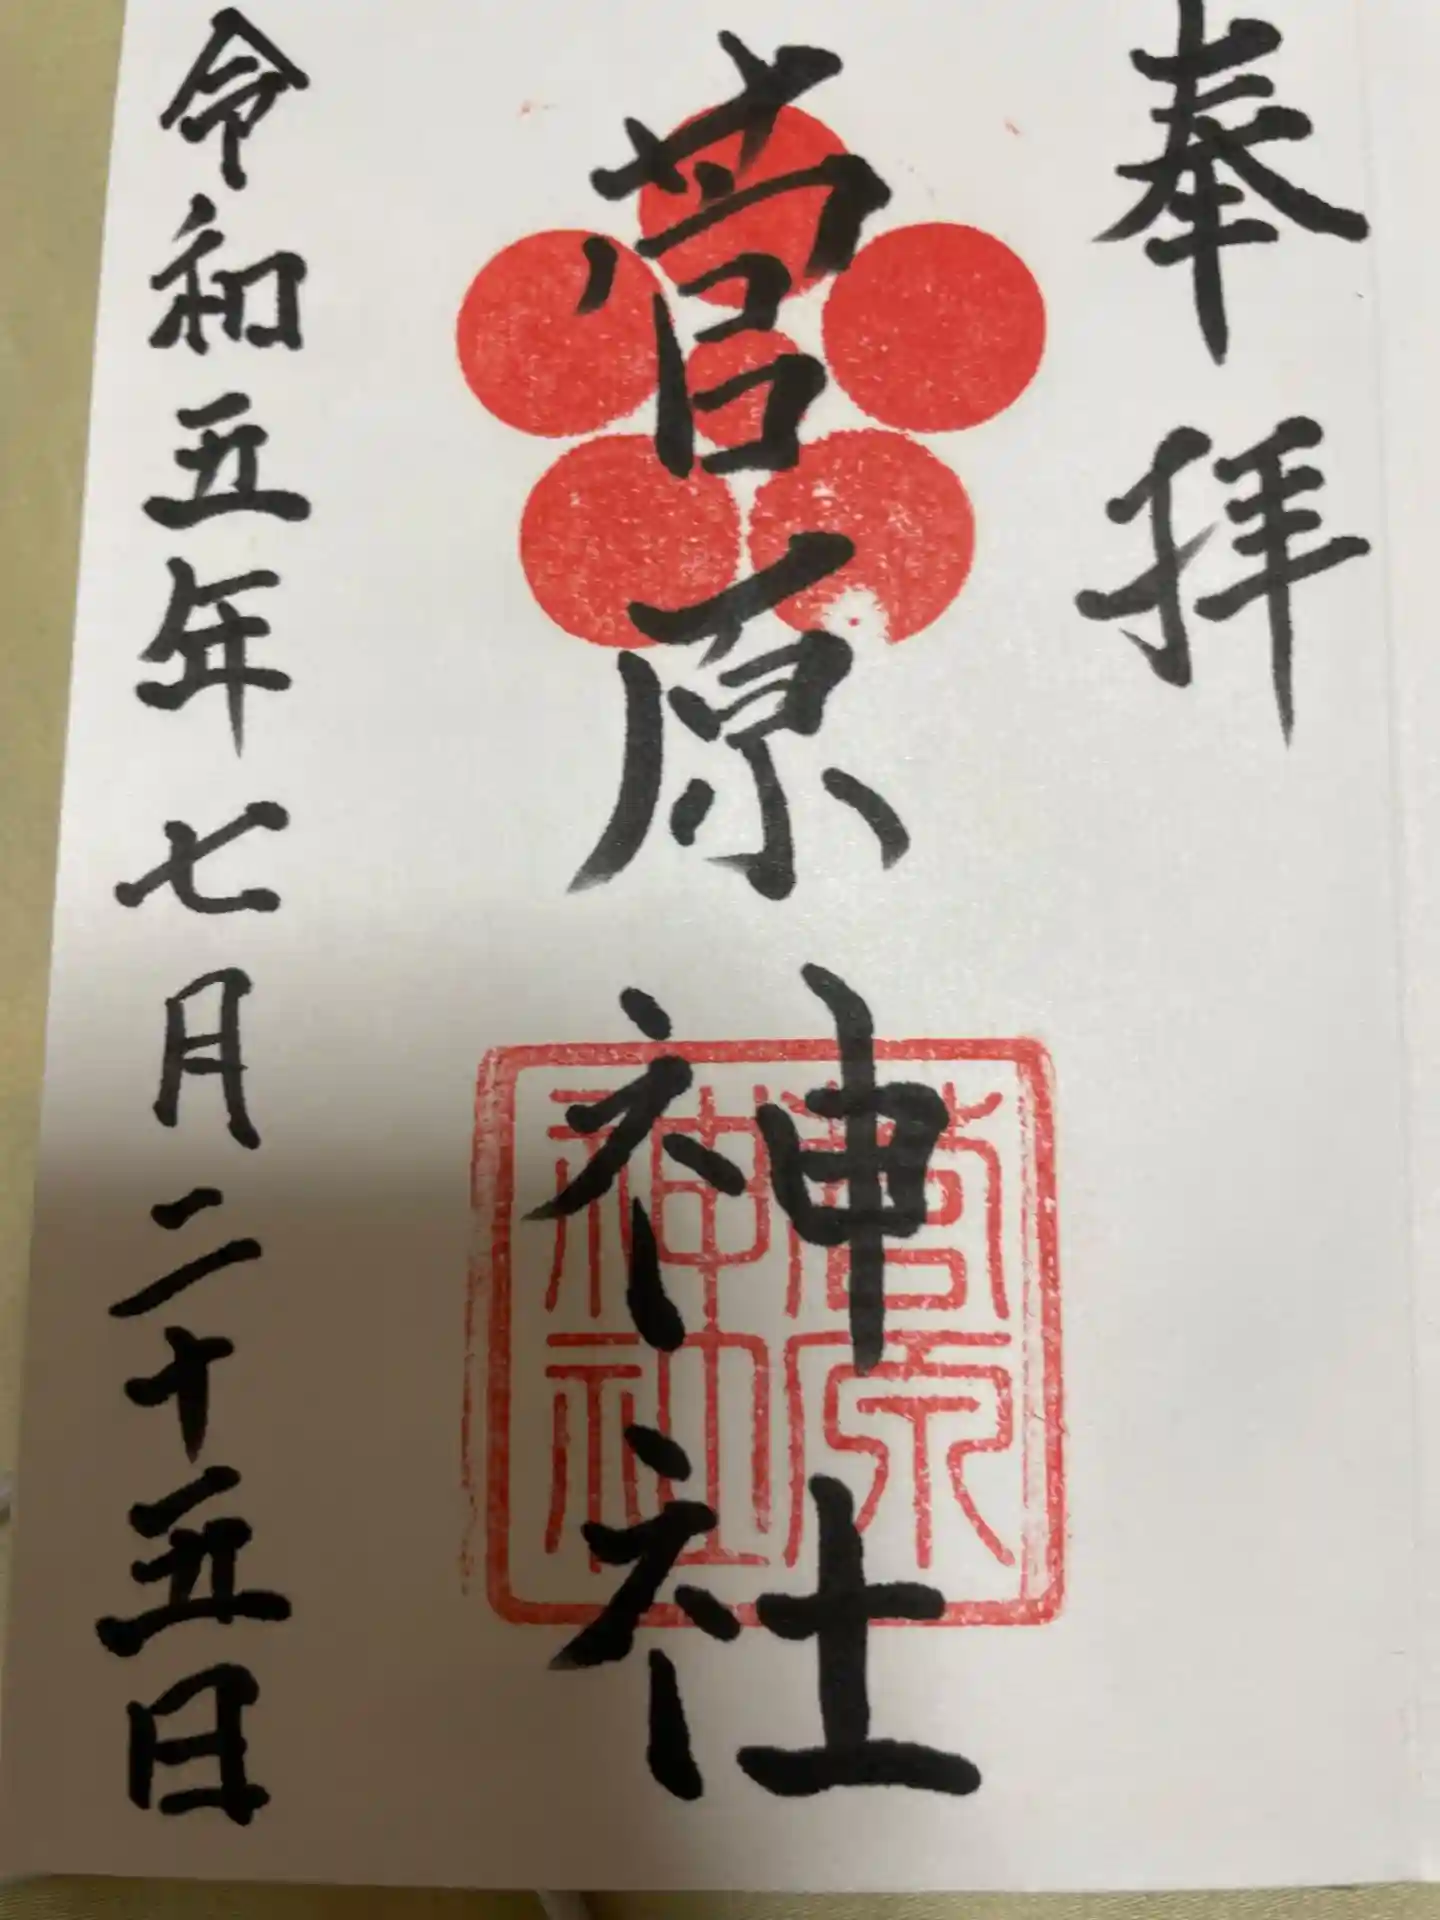 奉拝
菅原神社
菅原
神社
令和五年七月二十五日